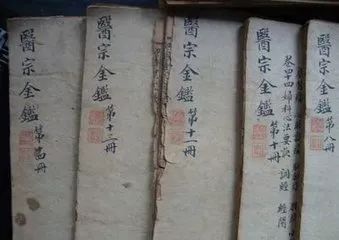 醫宗金鑑 第八冊
卷四十四婦科心法要訣 調經 經閉
醫宗金鑑 第十冊
醫宗金鑑 第十一冊
醫宗金鑑 第十三冊
醫宗金鑑 第 冊